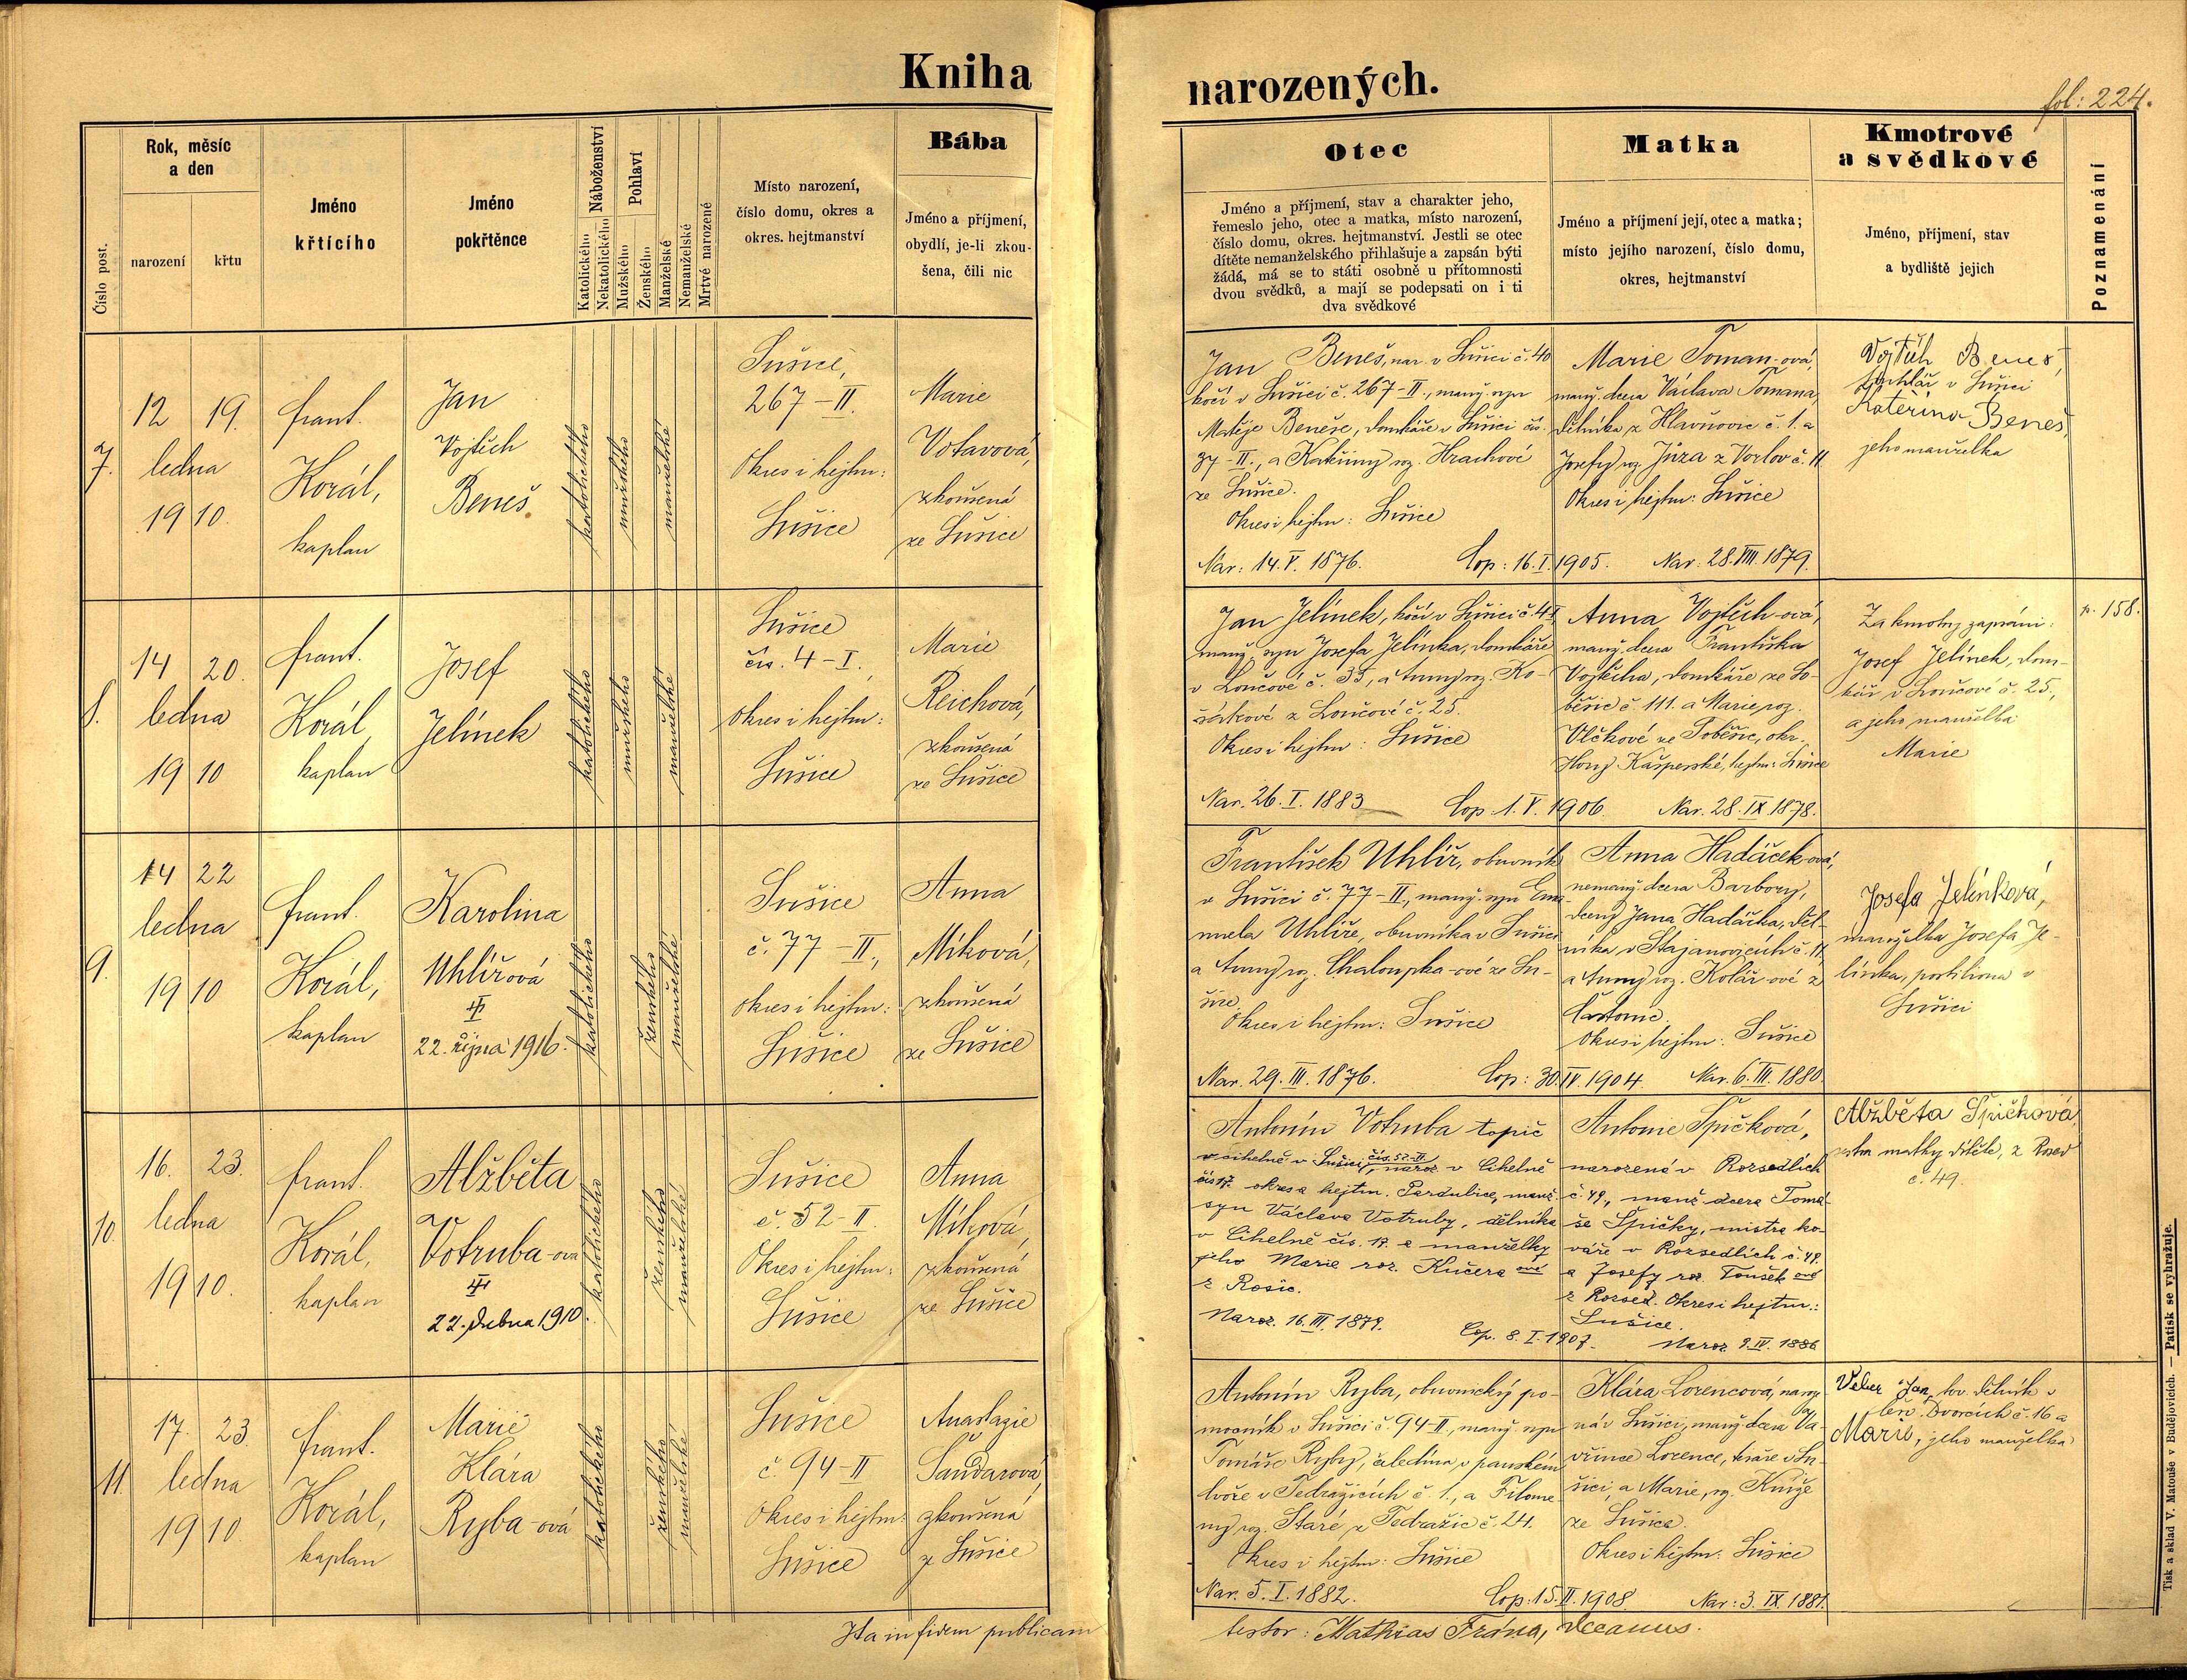 Kniha
narozených.
fol: 224.
Číslo post.
Rok, měsíc
a den
narození
křtu
Jméno
křtícího
Jméno
pokřtěnce
Náboženství
Katolického
Nekatolického
Pohlaví
Mužského
Ženského
Manželské
Nemanželské
Mrtvé narozené
Místo narození,
číslo domu, okres a
okres. hejtmanství
Bába
Jméno a příjmení,
obydlí, je-li zkou-
šena, čili nic
Otec
Jméno a příjmení, stav a charakter jeho,
řemeslo jeho, otec a matka, místo narození,
číslo domu, okres. hejtmanství. Jestli se otec
dítěte nemanželského přihlašuje a zapsán býti
žádá, má se to státi osobně u přítomnosti
dvou svědků, a mají se podepsati on i ti
dva svědkové
Matka
Jméno a příjmení její, otec a matka;
místo jejího narození, číslo domu,
okres, hejtmanství
Kmotrové
a svědkové
Jméno, příjmení, stav
a bydliště jejich
Poznamenání
7.
12 19.
ledna
1910.
frant.
Korál,
kaplan
Jan
Vojtěch
Beneš
katolického
mužského
manželské
Sušice,
267-II.
Okres i hejtm:
Sušice
Marie
Votavová,
zkoušená
ze Sušice
Jan Beneš, nar. v Sušici č. 40
kočí v Sušici č. 267-II., manž. syn
Matěje Beneše, domkáře v Sušici čís.
37-II., a Kateřiny roz. Hrachové
ze Sušice.
Okres i hejtm: Sušice
Nar: 14. V. 1876.
Cop: 16. I. 1905.
Marie Toman-ová,
manž. dcera Václava Tomana,
dělníka z Hlavňovic č. 1. a
Josefy roz. Jůza z Vorlov č. 11
Okres i hejtm: Sušice
Nar. 28. VIII. 1879.
Vojtěch Beneš,
truhlář v Sušici
Kateřina Beneš,
jeho manželka
8.
14 20.
ledna
1910
frant.
Korál,
kaplan
Josef
Jelínek
katolického
mužského
manželské
Sušice
čís. 4-I.,
okres i hejtm:
Sušice
Marie
Reichová,
zkoušená
ze Sušice
Jan Jelínek, kočí v Sušici č. 4-I
manž. syn Josefa Jelínka, domkáře
v Loučové č. 35, a Anny roz. Ko-
sárkové z Loučové č. 25.
Okres i hejtm: Sušice
Nar. 26. I. 1883
Cop: 1. V. 1906.
Anna Vojtěch-ová,
manž. dcera Františka
Vojtěcha, domkáře ze So-
běšic č. 111. a Marie roz.
Vlčkové ze Soběšic, okr.
Hory Kašperské, hejtm: Sušice
Nar. 28. IX 1878.
Za kmotry zapsáni:
Josef Jelínek, dom-
kář v Loučové č. 25,
a jeho manželka
Marie
p. 158.
9.
14 22
ledna
1910
frant.
Korál,
kaplan
Karolina
Uhlířová
22. října 1916.
katolického
ženského
manželské
Sušice
č. 77-II.,
okres i hejtm:
Sušice
Anna
Míková,
zkoušená
ze Sušice
František Uhlíř, obuvník
v Sušici č. 77-II., manž. syn Ema-
nuela Uhlíře, obuvníka v Sušici
a Anny roz. Chaloupka-ové ze Su-
šice.
Okres i hejtm: Sušice
Nar. 29. III. 1876.
Cop: 30. IV 1904.
Anna Hadáček-ová,
nemanž. dcera Barbory,
dcery Jana Hadáčka, děl-
níka v Stajanovicích č. 11,
a Anny roz. Kolář-ové z
Častonic.
Okres i hejtm: Sušice
Nar. 6. III. 1880.
Josefa Jelínková,
manželka Josefa Je-
línka, postiliona v
Sušici
10.
16. 23.
ledna
1910.
frant.
Korál,
kaplan
Alžběta
Votruba-ová
22. dubna 1910.
katolického
ženského
manželské
Sušice
č. 52-II.
Okres i hejtm:
Sušice
Anna
Míková,
zkoušená
ze Sušice
Antonín Votruba topič
v cihelně v Sušici, čís. 52-II naroz. v Cihelně
čís 17. okres a hejtm. Pardubice, manž.
syn Václava Votruby, dělníka
v Cihelně čís. 17. a manželky
jeho Marie roz. Kučera ové
z Rosic.
Naroz. 16. III. 1879.
Cop. 8. I. 1907.
Antonie Špičková,
narozená v Rozsedlích
č. 49., manž. dcera Tomá-
še Špičky, mistra ko-
váře v Rozsedlích č. 49.
a Josefy roz. Toušek ové
z Rozsed. Okres i hejtm.:
Sušice.
Naroz. 9. IV. 1886
Alžběta Špičková,
sestra matky dítěte, z Rozsed
č. 49.
11.
17. 23.
ledna
1910
frant.
Korál,
kaplan
Marie
Klára
Ryba-ová
katolického
ženského
manželské
Sušice
č. 94-II
Okres i hejtm:
Sušice
Anastazie
Šandarová,
zkoušená
z Sušice
Antonín Ryba, obuvnický po-
mocník v Sušici č. 94-II., manž. syn
Tomáše Ryby, čeledína v panském
dvoře v Tedražicích č. 1., a Filome-
ny roz. Staré z Tedražic č. 24.
Okres i hejtm: Sušice
Nar. 5. I. 1882.
Cop: 15. II. 1908.
Klára Lorencová, naroz.
ná v Sušici, manž. dcera Va-
vřince Lorence, tesaře v Su-
šici, a Marie, roz. Kníže
ze Sušice.
Okres i hejtm: Sušice
Nar: 3. IX. 1881.
Veber Jan, tov. dělník v
Červ. Dvorcích č. 16 a
Marie, jeho manželka
Ita in fidem publicam
testor: Mathias Frána, decanus.
Tisk a sklad V. Matouše v Budějovicích. — Patisk se vyhražuje.